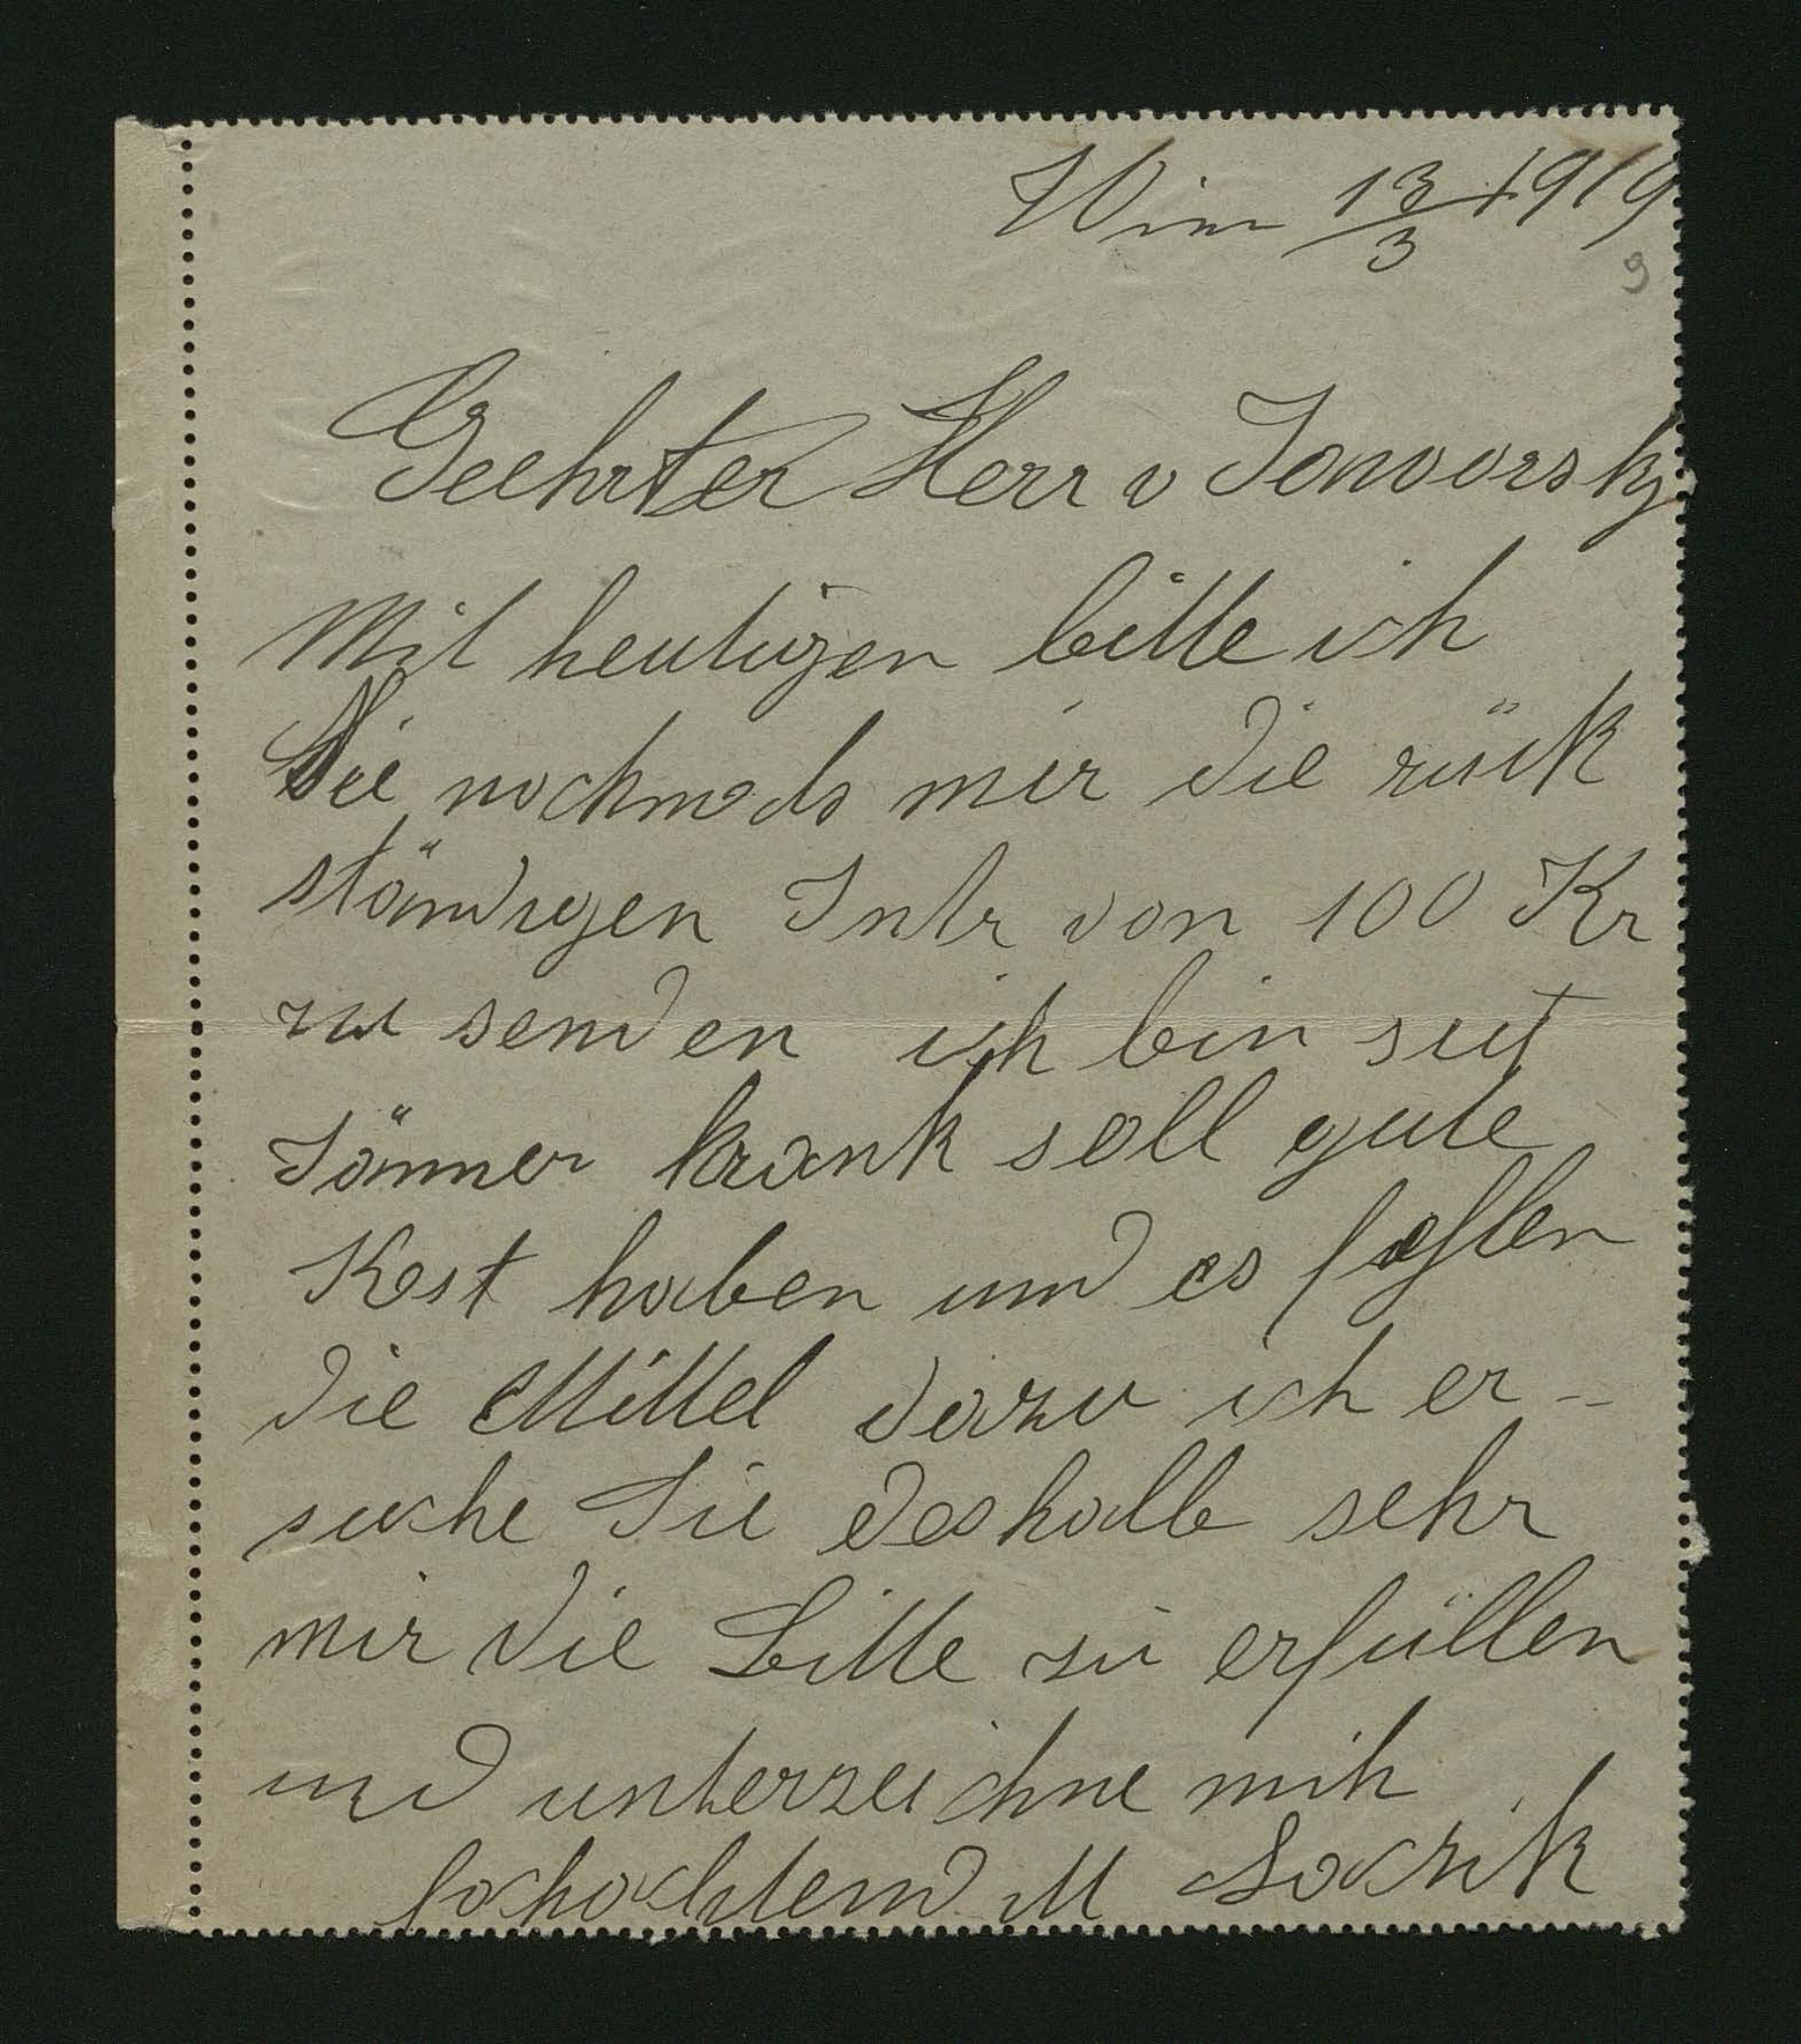 Wien 13/3 1919
9
Geehrter Herr v Jaworsky
Mit heutigen bitte ich
Sie nochmals mir die rück
ständigen Intr von 100 Kr
zu senden ich bin seit
Jänner krank soll gute
Kost haben und es fehlen
die Mittel dazu ich er-
suche Sie deshalb sehr
mir die Bitte zu erfüllen
und unterzeichne mich
hochachtend M